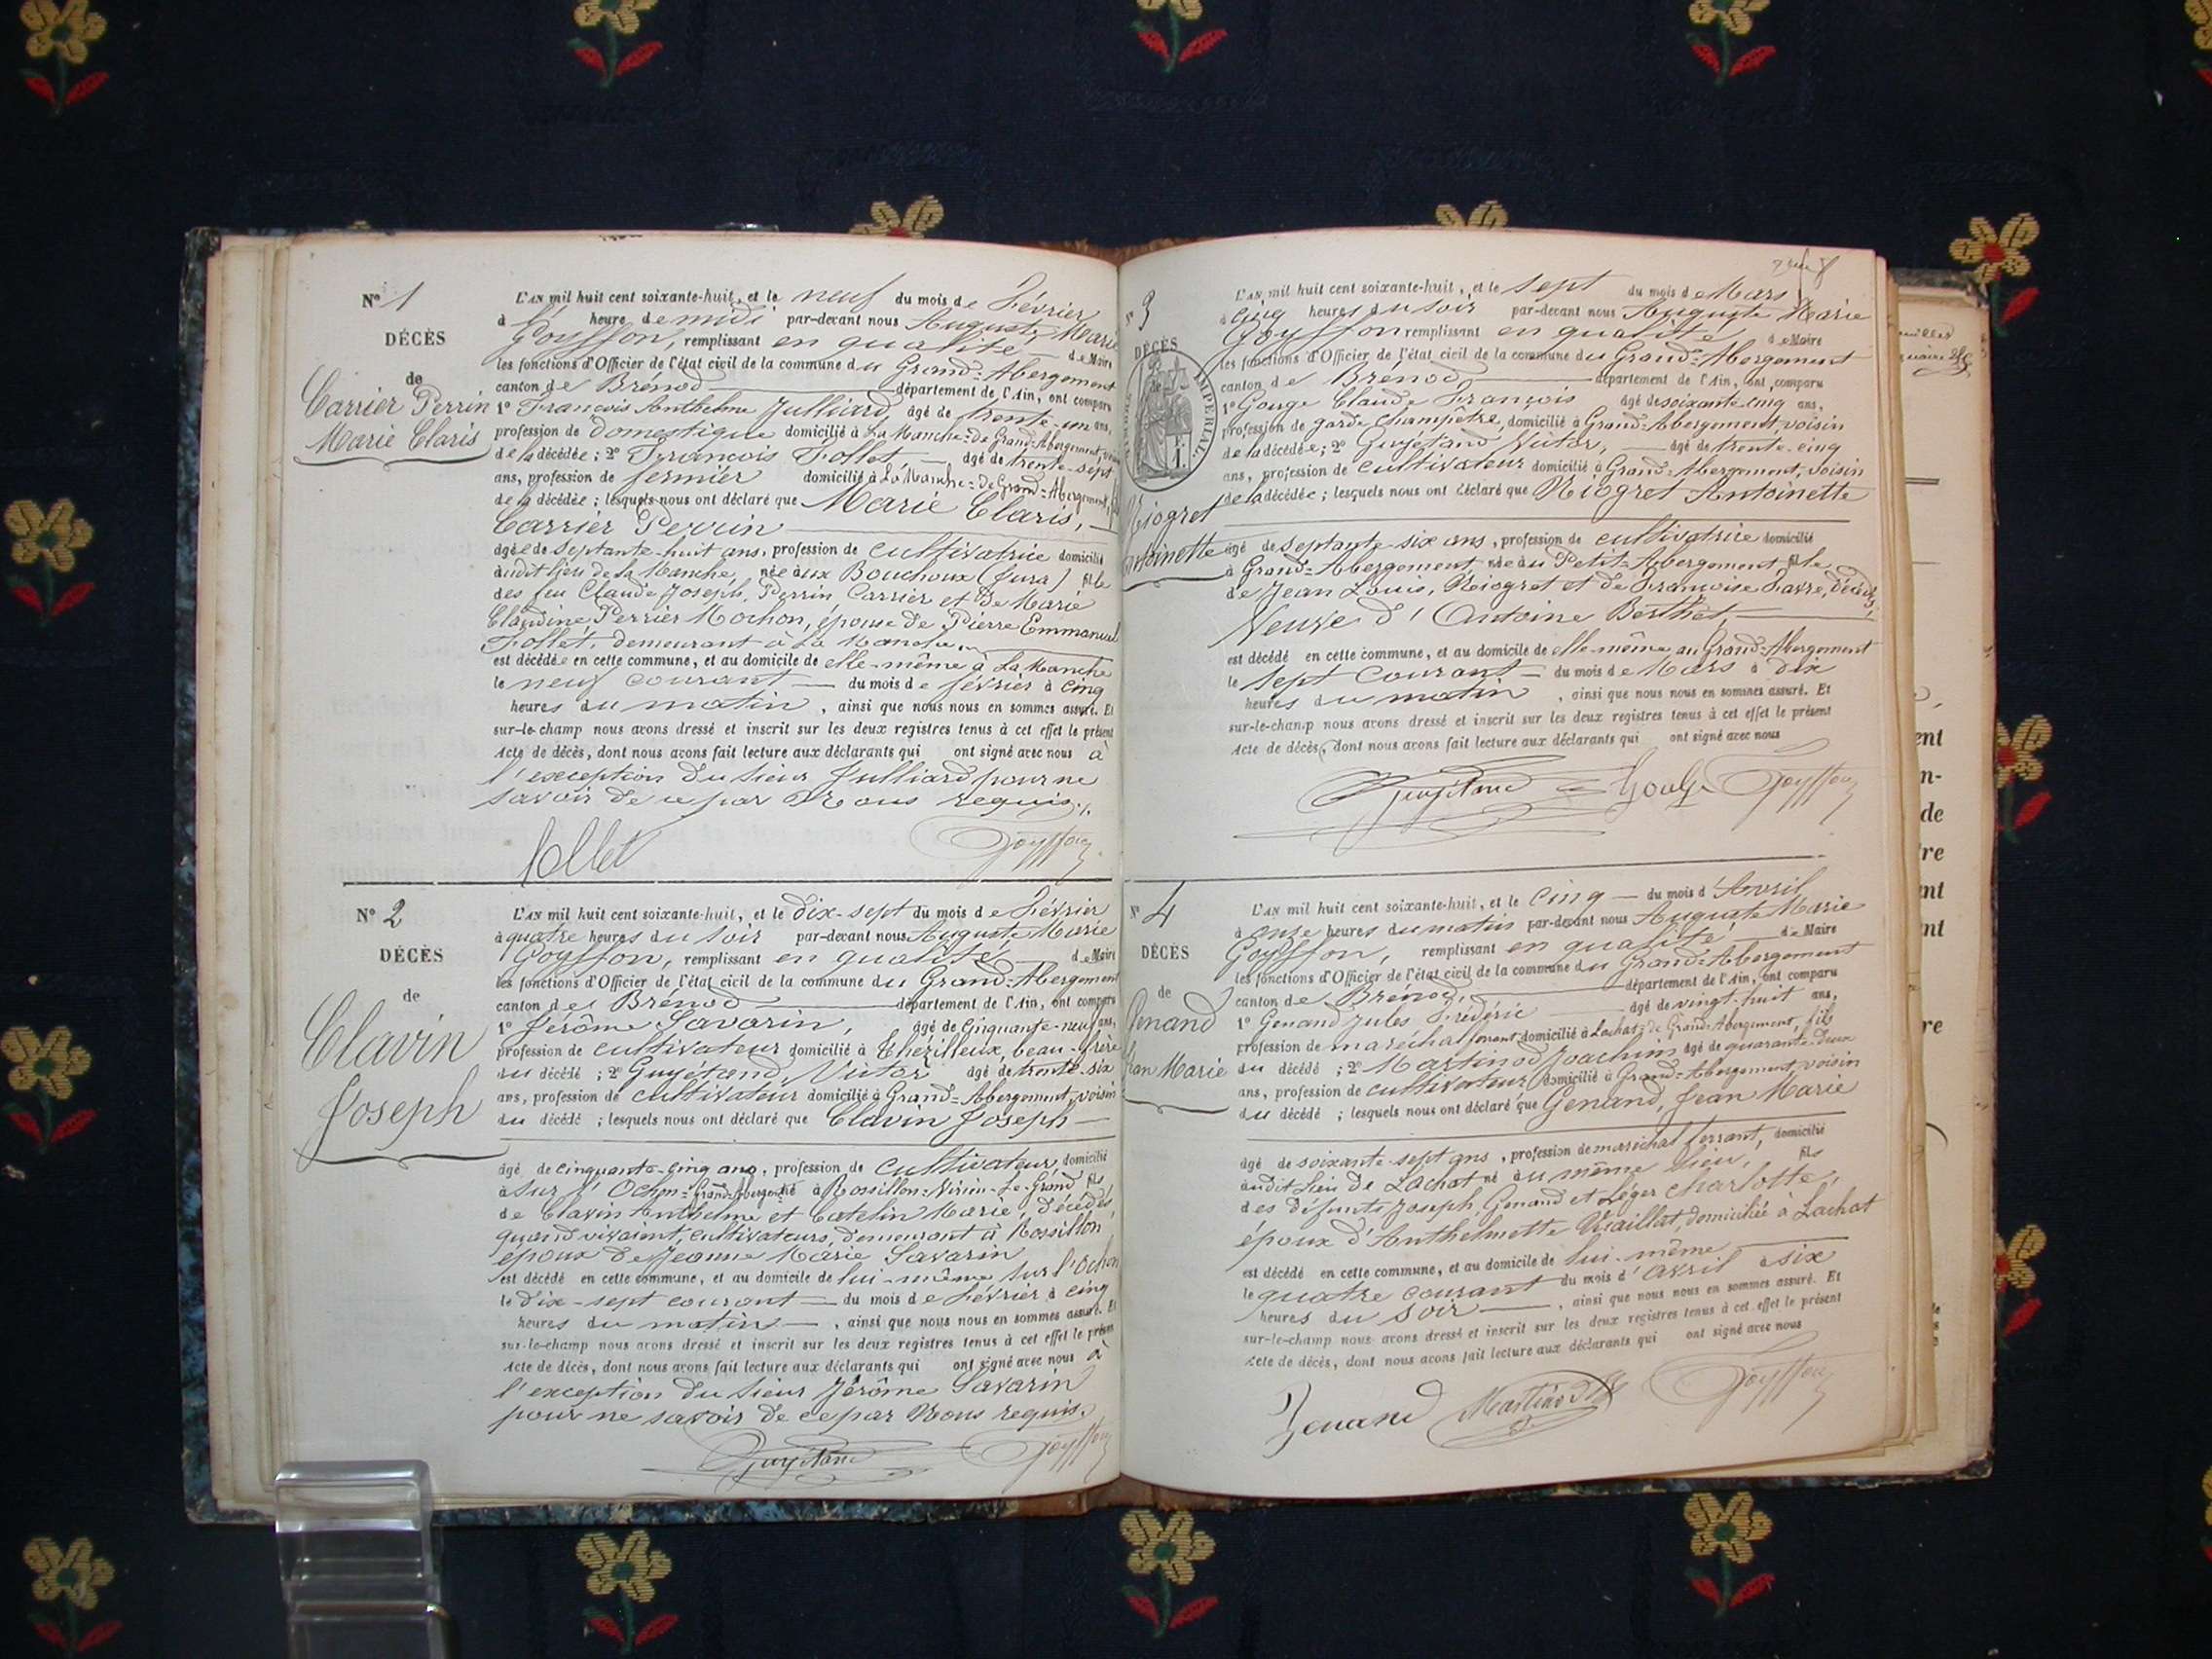 N° 1
DÉCÈS
de
Carrier Perrin
Marie Claris
L'AN mil huit cent soixante-huit, et le neuf du mois de Février
à heure de midi par-devant nous Auguste Marie
Goyffon, remplissant en qualité de Maire
les fonctions d'Officier de l'état civil de la commune du Grand-Abergement
canton de Brénod département de l'Ain, ont comparu
1° François Anthelme Julliard, âgé de trente-un ans,
profession de domestique domicilié à La Manche-de Grand-Abergement,
de la décédée ; 2° François Follet, âgé de trente-sept
ans, profession de fermier domicilié à La Manche-de Grand-Abergement,
de la décédée ; lesquels nous ont déclaré que Marie Claris,
Carrier Perrin
âgée de septante-huit ans, profession de cultivatrice domicilié
audit lieu de La Manche, née aux Bouchoux (Jura) fille
des feu Claude Joseph, Perrin Carrier et de Marie
Claudine Perrier Mochon, épouse de Pierre Emmanuel
Follet, demeurant à La Manche,
est décédée en cette commune, et au domicile de elle-même à La Manche
le neuf courant du mois de février à cinq
heures du matin, ainsi que nous nous en sommes assuré. Et
sur-le-champ nous avons dressé et inscrit sur les deux registres tenus à cet effet le présent
Acte de décès, dont nous avons fait lecture aux déclarants qui ont signé avec nous à
l'exception du sieur Julliard pour ne
savoir de ce par Nous requis.
follet Goyffon
N° 2
DÉCÈS
de
Clavin
Joseph
L'AN mil huit cent soixante-huit, et le dix-sept du mois de Février
à quatre heures du soir par-devant nous Auguste Marie
Goyffon, remplissant en qualité de Maire
les fonctions d'Officier de l'état civil de la commune du Grand-Abergement
canton de Brénod département de l'Ain, ont comparu
1° Jérôme Savarin, âgé de cinquante-neuf ans,
profession de cultivateur domicilié à Thézilleux, beau-frère
du décédé ; 2° Guyétand, Victor âgé de trente-six
ans, profession de cultivateur domicilié à Grand-Abergement, voisin
du décédé ; lesquels nous ont déclaré que Clavin Joseph
âgé de cinquante-cinq ans, profession de cultivateur domicilié
à sur l'Ochon-Grand-Abergement né à Rossillon-Virieu-Le-Grand fils
de Clavin Anthelme et Catelin Marie, décédés,
quand vivaient, cultivateurs, demeurant à Rossillon
époux de Jeanne Marie Savarin
est décédé en cette commune, et au domicile de lui-même sur l'Ochon
le dix-sept courant du mois de Février à cinq
heures du matin, ainsi que nous nous en sommes assuré. Et
sur-le-champ nous avons dressé et inscrit sur les deux registres tenus à cet effet le présent
Acte de décès, dont nous avons fait lecture aux déclarants qui ont signé avec nous à
l'exception du sieur Jérôme Savarin
pour ne savoir de ce par Nous requis.
Guyétand Goyffon
N° 3
DÉCÈS
de
IMPERIAL
Niogret
Antoinette
L'AN mil huit cent soixante-huit, et le sept du mois de Mars
à cinq heures du soir par-devant nous Auguste Marie
Goyffon remplissant en qualité de Maire
les fonctions d'Officier de l'état civil de la commune du Grand-Abergement
canton de Brénod, département de l'Ain, ont comparu
1° Gouge Claude François âgé de soixante cinq ans,
profession de garde champêtre, domicilié à Grand-Abergement, voisin
de la décédée ; 2° Guyétand Victor, âgé de trente-cinq
ans, profession de cultivateur domicilié à Grand-Abergement, voisin
de la décédée ; lesquels nous ont déclaré que Niogret Antoinette
âgé de septante-six ans, profession de cultivatrice domicilié
à Grand-Abergement née au Petit-Abergement fille
de Jean Louis, Niogret et de Françoise Favre, décédés,
Veuve d'Antoine Berthet,
est décédé en cette commune, et au domicile de elle-même au Grand-Abergement
le sept courant du mois de Mars à dix
heures du matin, ainsi que nous nous en sommes assuré. Et
sur-le-champ nous avons dressé et inscrit sur les deux registres tenus à cet effet le présent
Acte de décès, dont nous avons fait lecture aux déclarants qui ont signé avec nous
Guyétand Gouge Goyffon
N° 4
DÉCÈS
de
Genand
Jean Marie
L'AN mil huit cent soixante-huit, et le cinq du mois d'Avril
à onze heures du matin par-devant nous Auguste Marie
Goyffon, remplissant en qualité de Maire
les fonctions d'Officier de l'état civil de la commune du Grand-Abergement
canton de Brénod, département de l'Ain, ont comparu
1° Genand Jules Frédéric âgé de vingt-huit ans,
profession de maréchal ferrant domicilié à Lachat-de Grand-Abergement, fils
du décédé ; 2° Martinod Joachim âgé de quarante-deux
ans, profession de cultivateur domicilié à Grand-Abergement, voisin
du décédé ; lesquels nous ont déclaré que Genand, Jean Marie
âgé de soixante-sept ans, profession de maréchal ferrant, domicilié
audit lieu de Lachat né au même lieu, fils
des défunts Joseph, Genand et Léger Charlotte,
époux d'Anthelmette Vuaillat, domiciliée à Lachat
est décédé en cette commune, et au domicile de lui-même
le quatre courant du mois d'avril à six
heures du soir, ainsi que nous nous en sommes assuré. Et
sur-le-champ nous avons dressé et inscrit sur les deux registres tenus à cet effet le présent
Acte de décès, dont nous avons fait lecture aux déclarants qui ont signé avec nous
Genand Martinod Goyffon